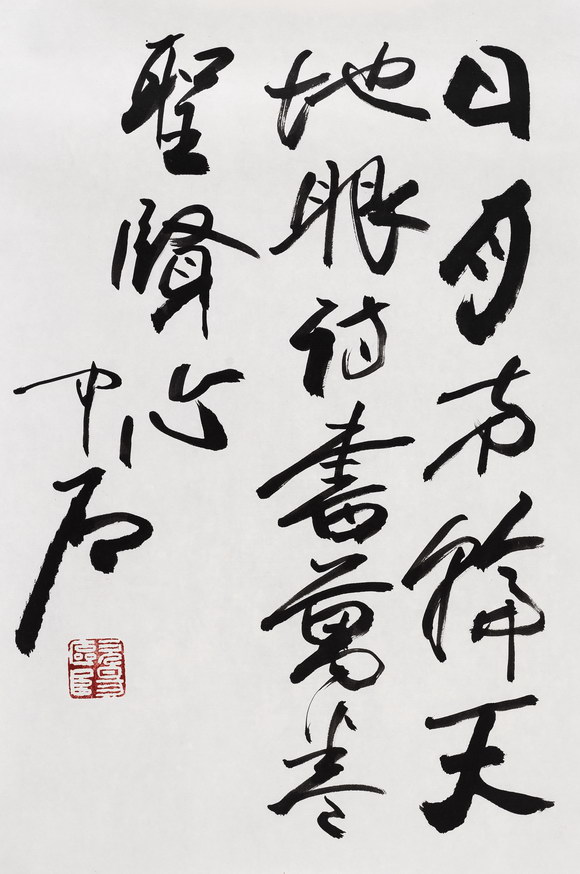 日月两轮天
地眼诗書萬卷
聖賢心
中石